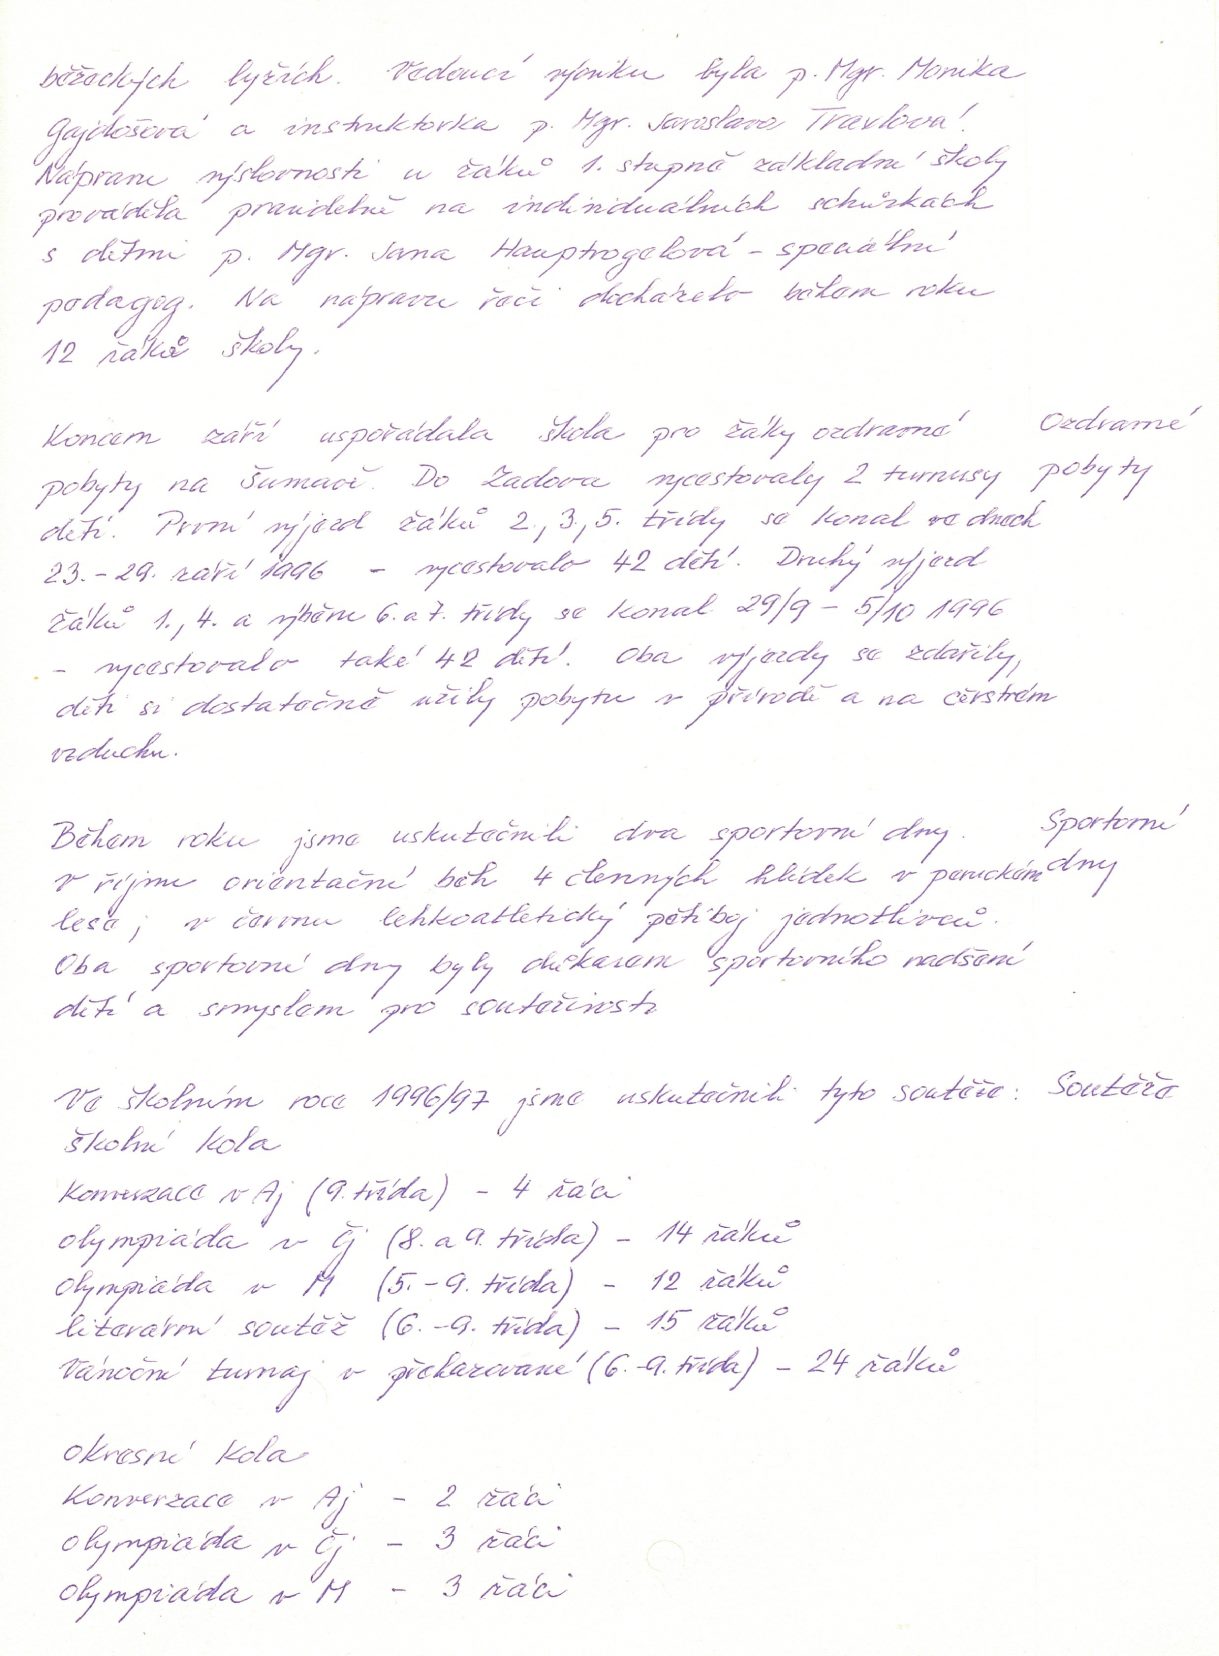 běžeckých lyžích. Vedoucí výcviku byla p. Mgr. Monika
Gajdošová a instruktorka p. Mgr. Jaroslava Travlová.
Nápravu výslovnosti u žáků 1. stupně základní školy
prováděla pravidelně na individuálních schůzkách
s dětmi p. Mgr. Jana Hauptvogelová – speciální
pedagog. Na nápravu řeči docházelo během roku
12 žáků školy.
Koncem září uspořádala škola pro žáky ozdravné
Ozdravné
pobyty na Šumavě. Do Zadova vycestovaly 2 turnusy
pobyty
dětí. První výjezd žáků 2., 3., 5. třídy se konal ve dnech
23. – 29. září 1996 – vycestovalo 42 dětí. Druhý výjezd
žáků 1., 4. a výběru 6. a 7. třídy se konal 29/9 – 5/10 1996
– vycestovalo také 42 dětí. Oba výjezdy se zdařily,
děti si dostatečně užily pobytu v přírodě a na čerstvém
vzduchu.
Během roku jsme uskutečnili dva sportovní dny.
Sportovní
V říjnu orientační běh 4 členných hlídek v peruckém
dny
lese, v červnu lehkoatletický pětiboj jednotlivců.
Oba sportovní dny byly důkazem sportovního nadšení
dětí a smyslem pro soutěživost.
Ve školním roce 1996/97 jsme uskutečnili tyto soutěže:
Soutěže
školní kola
Konverzace v Aj (9. třída) – 4 žáci
olympiáda v Čj (8. a 9. třída) – 14 žáků
olympiáda v M (5. – 9. třída) – 12 žáků
literární soutěž (6. – 9. třída) – 15 žáků
Vánoční turnaj v přehazované (6. – 9. třída) – 24 žáků
okresní kola
Konverzace v Aj – 2 žáci
olympiáda v Čj – 3 žáci
olympiáda v M – 3 žáci